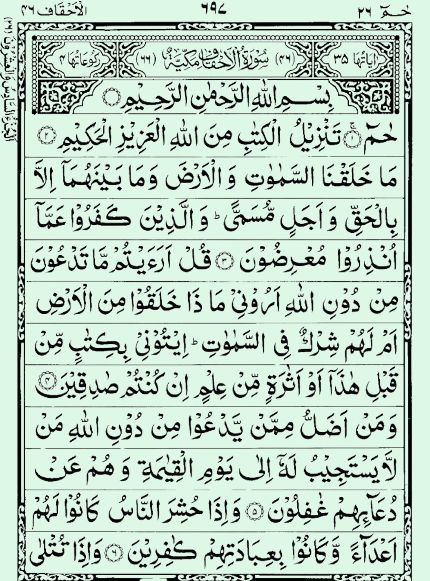 الاحقاف ٤٦
٦٩٧
حٰمٓ ٢٦
اٰيَاتُهَا ٣٥ (٤٦) سُوْرَةُ الْاَحْقَافِ مَكِّيَّةٌ (٦٦) رُكُوْعَاتُهَا ٤
بِسْمِ اللّٰهِ الرَّحْمٰنِ الرَّحِيْمِ
حٰمٓ ۚ‏﴿۱﴾ تَنْزِيْلُ الْكِتٰبِ مِنَ اللّٰهِ الْعَزِيْزِ الْحَكِيْمِ ﴿۲﴾
مَا خَلَقْنَا السَّمٰوٰتِ وَ الْاَرْضَ وَ مَا بَيْنَهُمَاۤ اِلَّا
بِالْحَقِّ وَ اَجَلٍ مُّسَمًّى ؕ وَ الَّذِيْنَ كَفَرُوْا عَمَّاۤ
اُنْذِرُوْا مُعْرِضُوْنَ ﴿۳﴾ قُلْ اَرَءَيْتُمْ مَّا تَدْعُوْنَ
مِنْ دُوْنِ اللّٰهِ اَرُوْنِيْ مَا ذَا خَلَقُوْا مِنَ الْاَرْضِ
اَمْ لَهُمْ شِرْكٌ فِي السَّمٰوٰتِ ؕ اِيْتُوْنِيْ بِكِتٰبٍ مِّنْ
قَبْلِ هٰذَاۤ اَوْ اَثٰرَةٍ مِّنْ عِلْمٍ اِنْ كُنْتُمْ صٰدِقِيْنَ ﴿۴﴾
وَ مَنْ اَضَلُّ مِمَّنْ يَّدْعُوْا مِنْ دُوْنِ اللّٰهِ مَنْ
لَّا يَسْتَجِيْبُ لَهٗۤ اِلٰى يَوْمِ الْقِيٰمَةِ وَ هُمْ عَنْ
دُعَآئِهِمْ غٰفِلُوْنَ ﴿۵﴾ وَ اِذَا حُشِرَ النَّاسُ كَانُوْا لَهُمْ
اَعْدَآءً وَّ كَانُوْا بِعِبَادَتِهِمْ كٰفِرِيْنَ ﴿۶﴾ وَ اِذَا تُتْلٰى